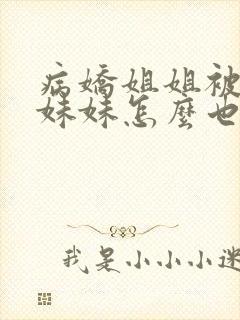 病嬌姐姐被
妹妹怎麼也
我是小小小迷